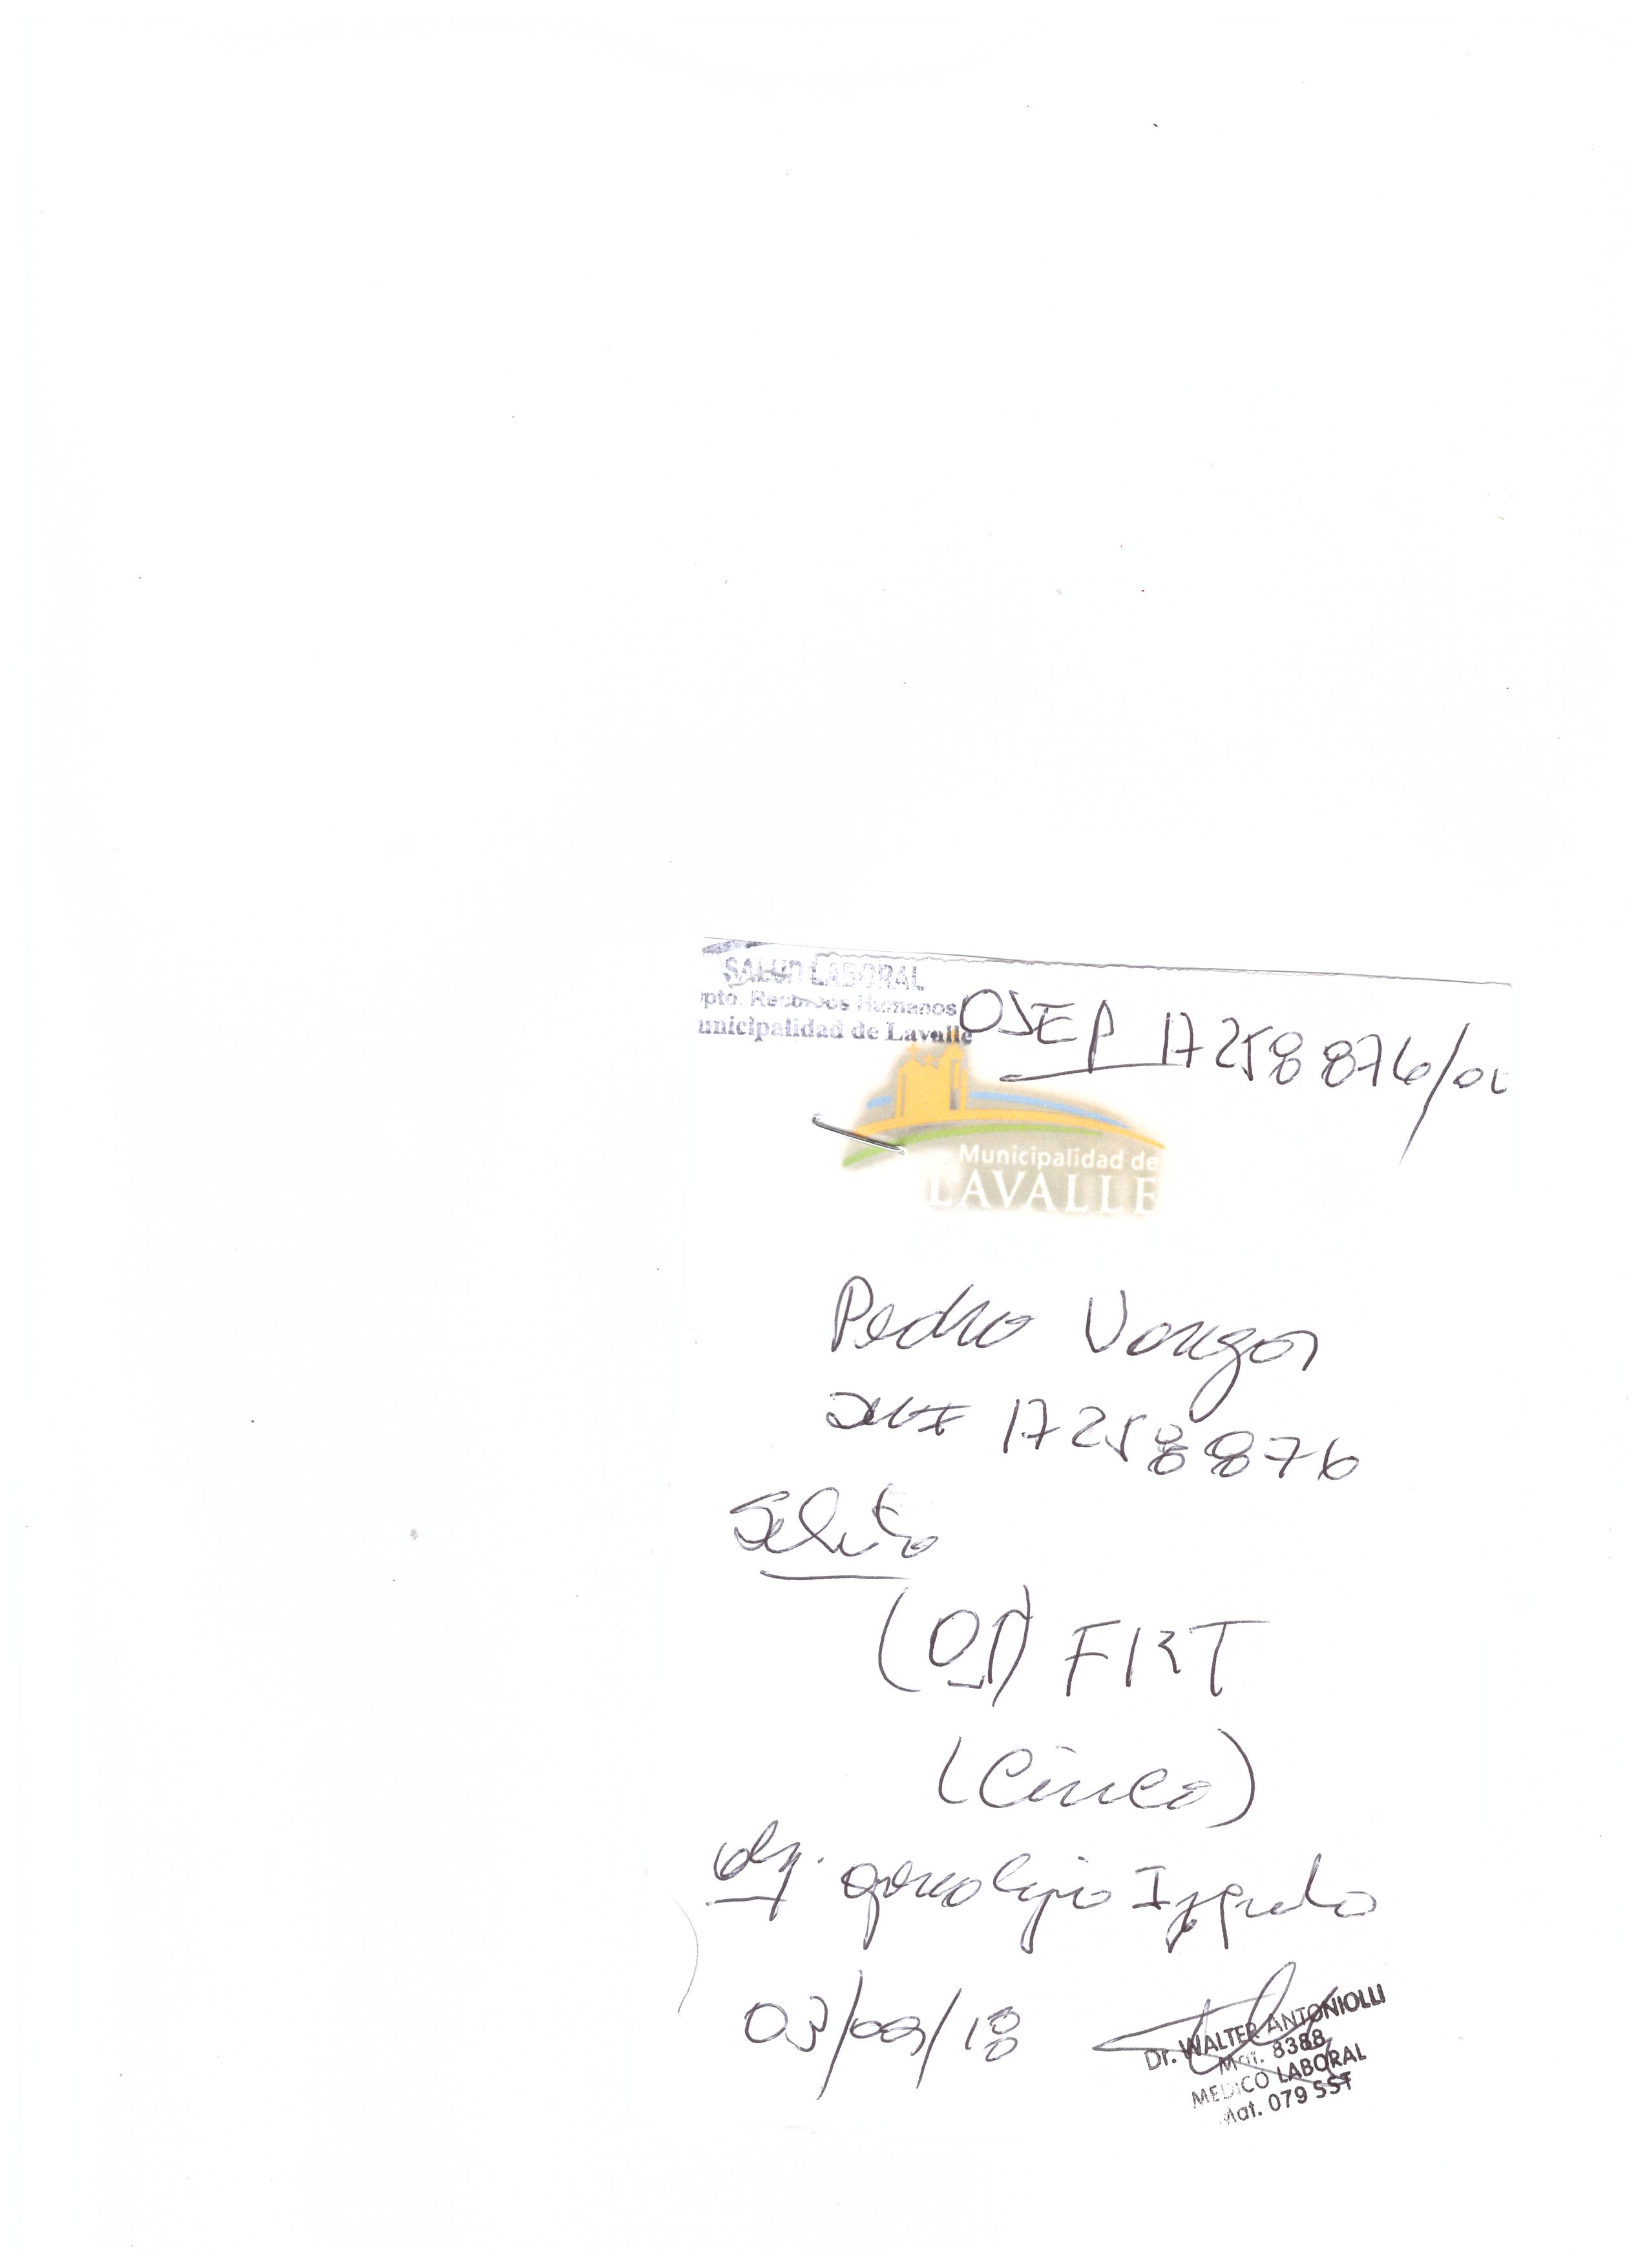 SALUD LABORAL
pto. Recursos Humanos
unicipalidad de Lavalle
OSEP 17258876/0
Municipalidad de
LAVALLE
Pedro Vargas
DNI 17258876
Solicito
(05) FKT
(Cinco)
Dg. gonalgia Izquierda
03/09/18
Dr. WALTER ANTONIOLLI
Mat. 8388
MEDICO LABORAL
Mat. 079 SST